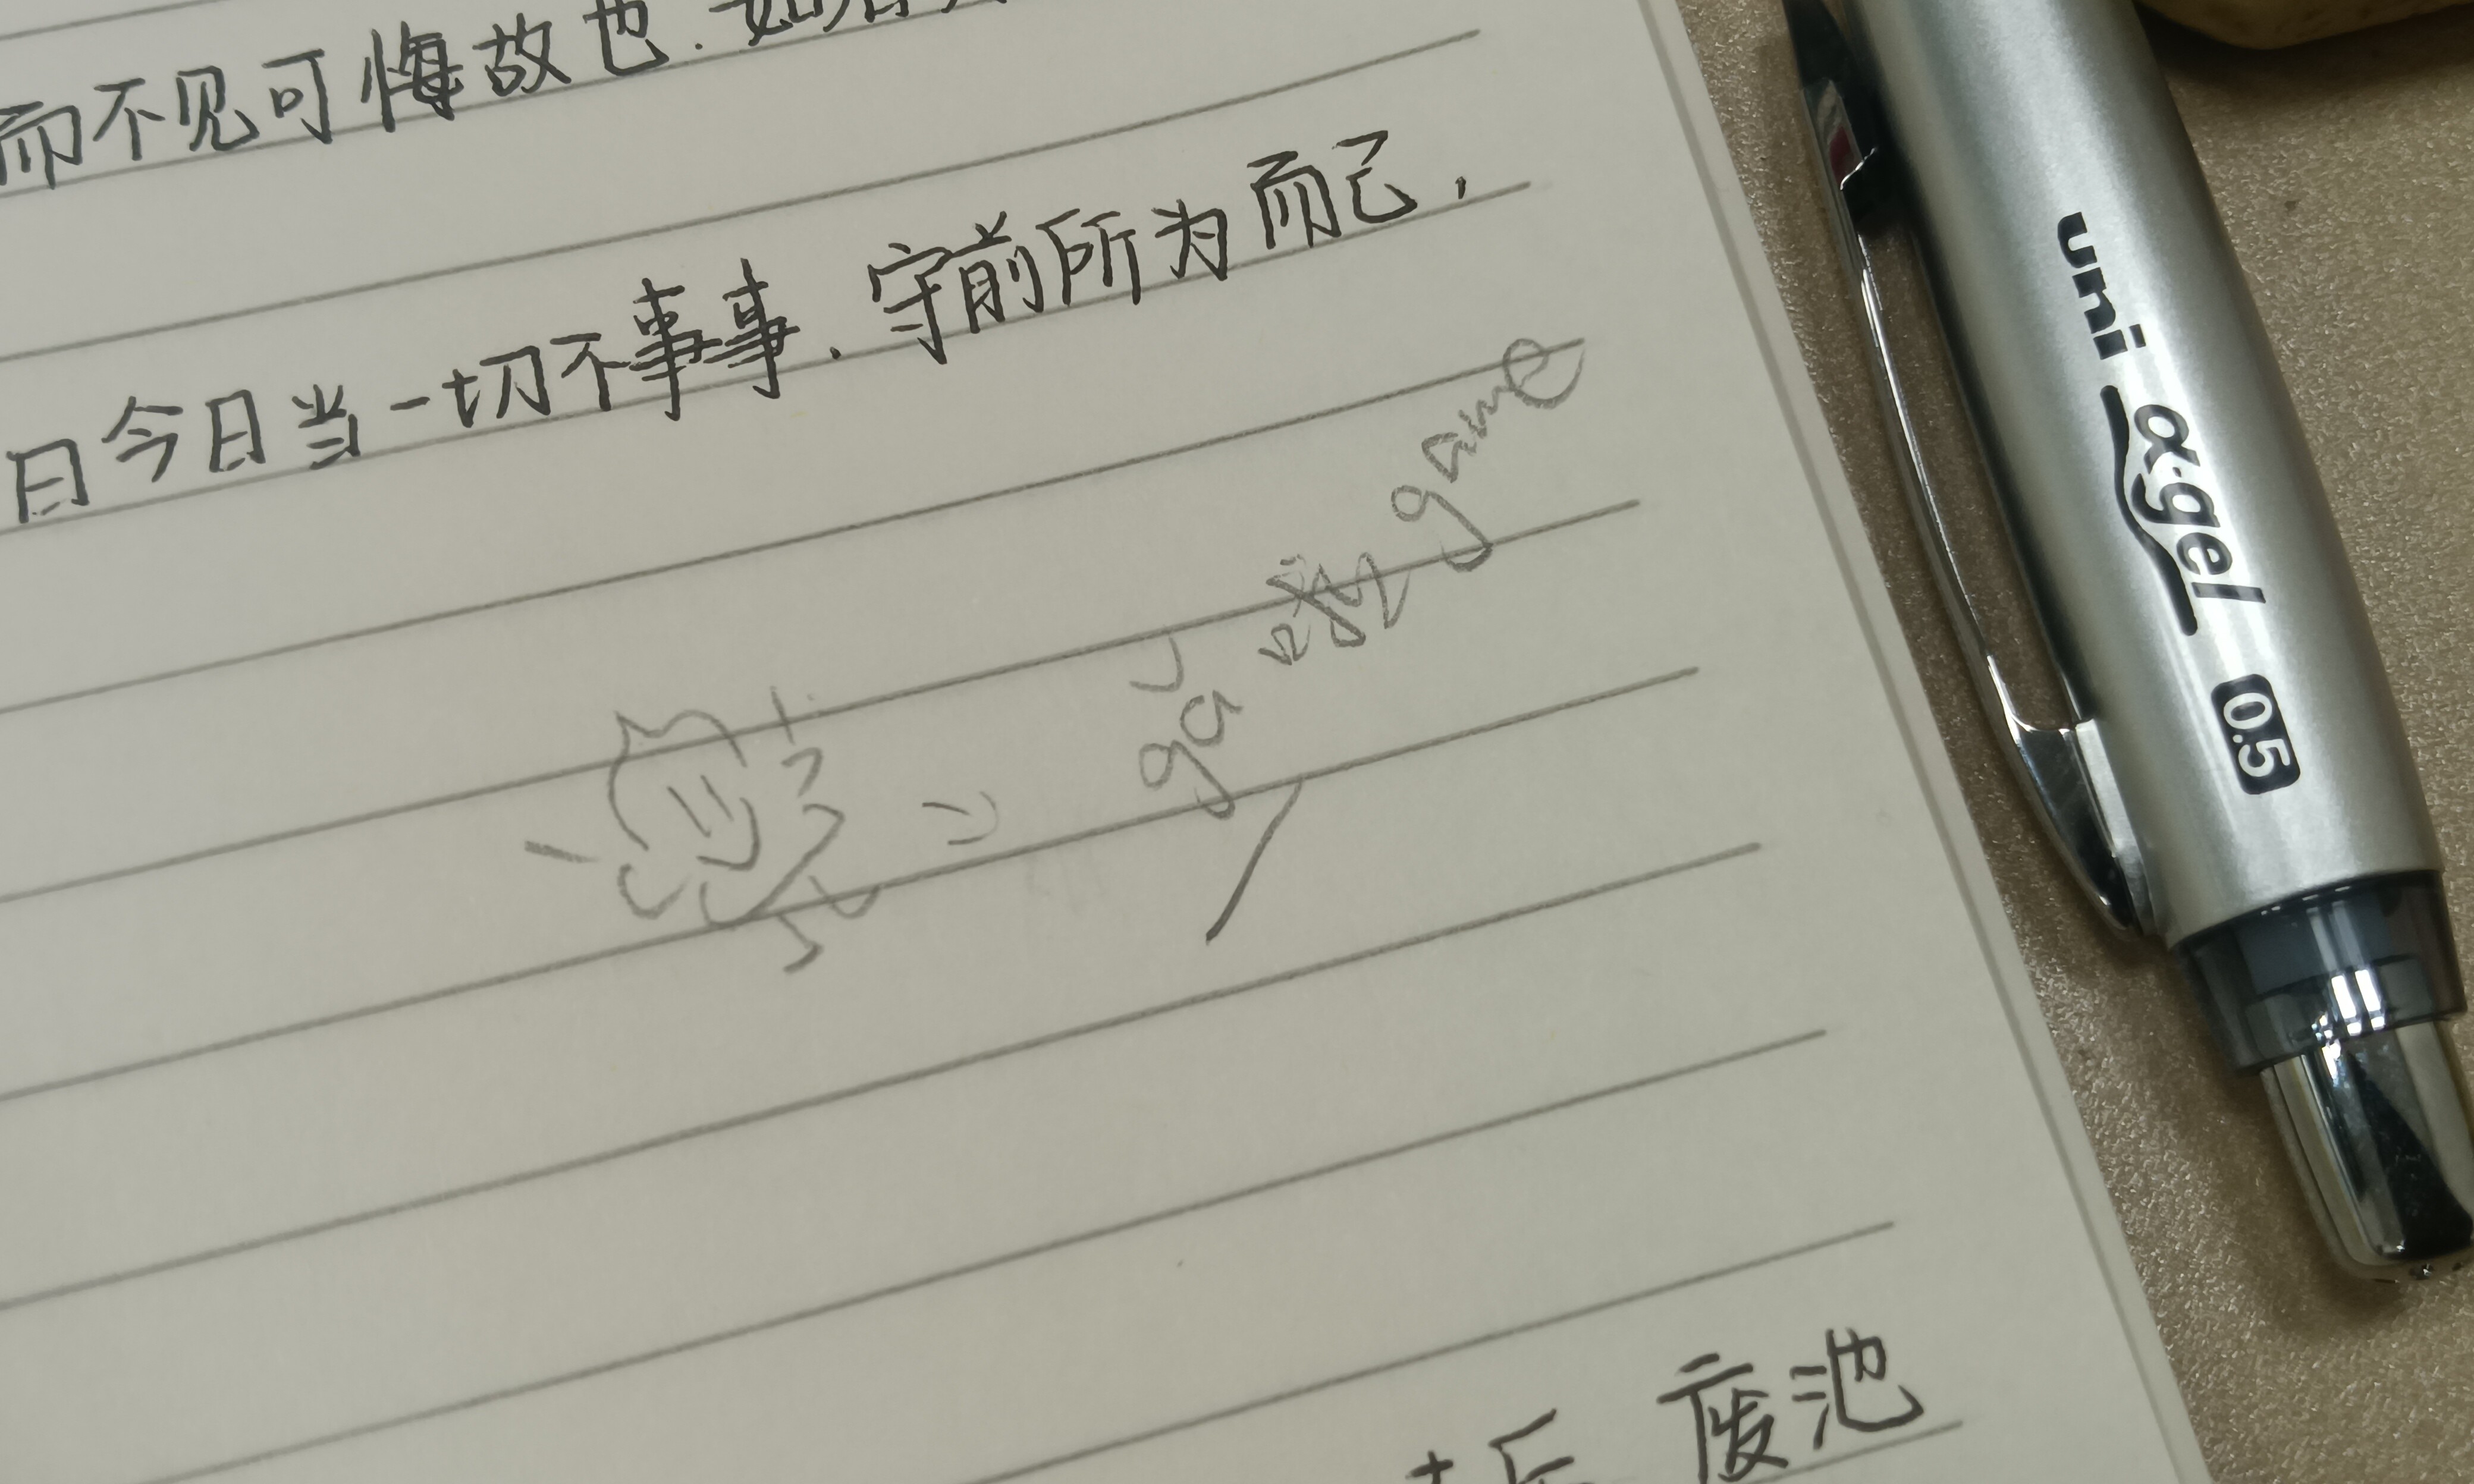 而不见可悔故也.如
日今日当一切不事事.守前所为而己,
game
ga
废池
uni α·gel 0.5